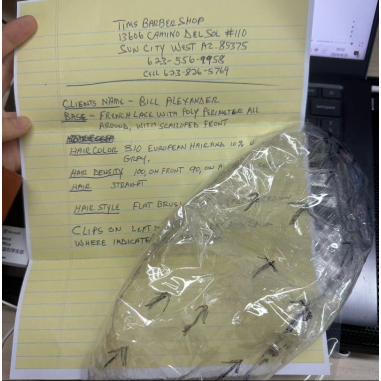 TIMS BARBER SHOP
13606 CAMINO DEL SOL #110
SUN CITY WEST AZ. 85375
623-556-9958
CELL 623-826-5769
CLIENTS NAME - BILL ALEXANDER
BASE - FRENCH LACE WITH POLY PERIMETER ALL
AROUND, WITH SCALLOPED FRONT
HAIR COLOR 310 EUROPEAN HAIR AND 10%
GRAY,
HAIR DENSITY 100, ON FRONT 90, ON
HAIR STRAIGHT
HAIR STYLE FLAT BRUSH
CLIPS ON LEFT
WHERE INDICATE